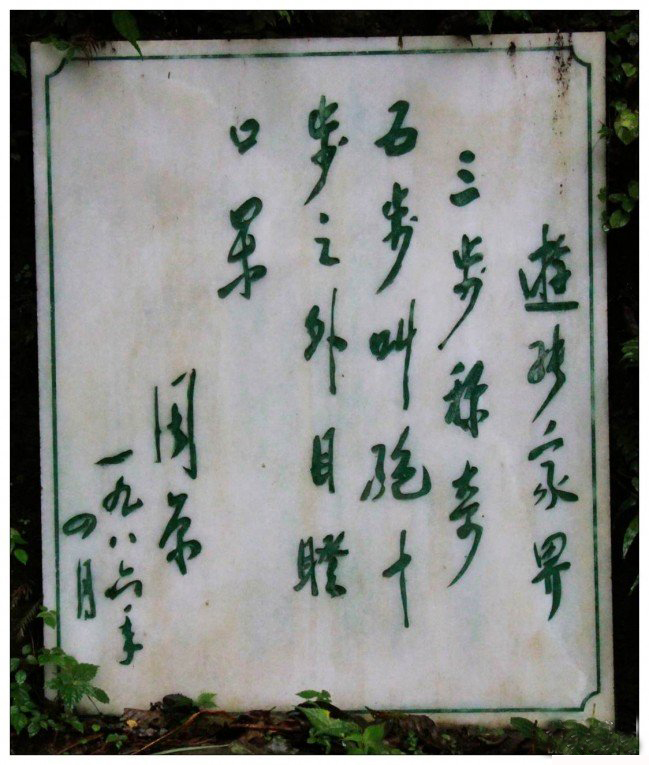 遊张家界
三步称奇
五步叫绝十
步之外目瞪
口呆
周
一九八六年
四月